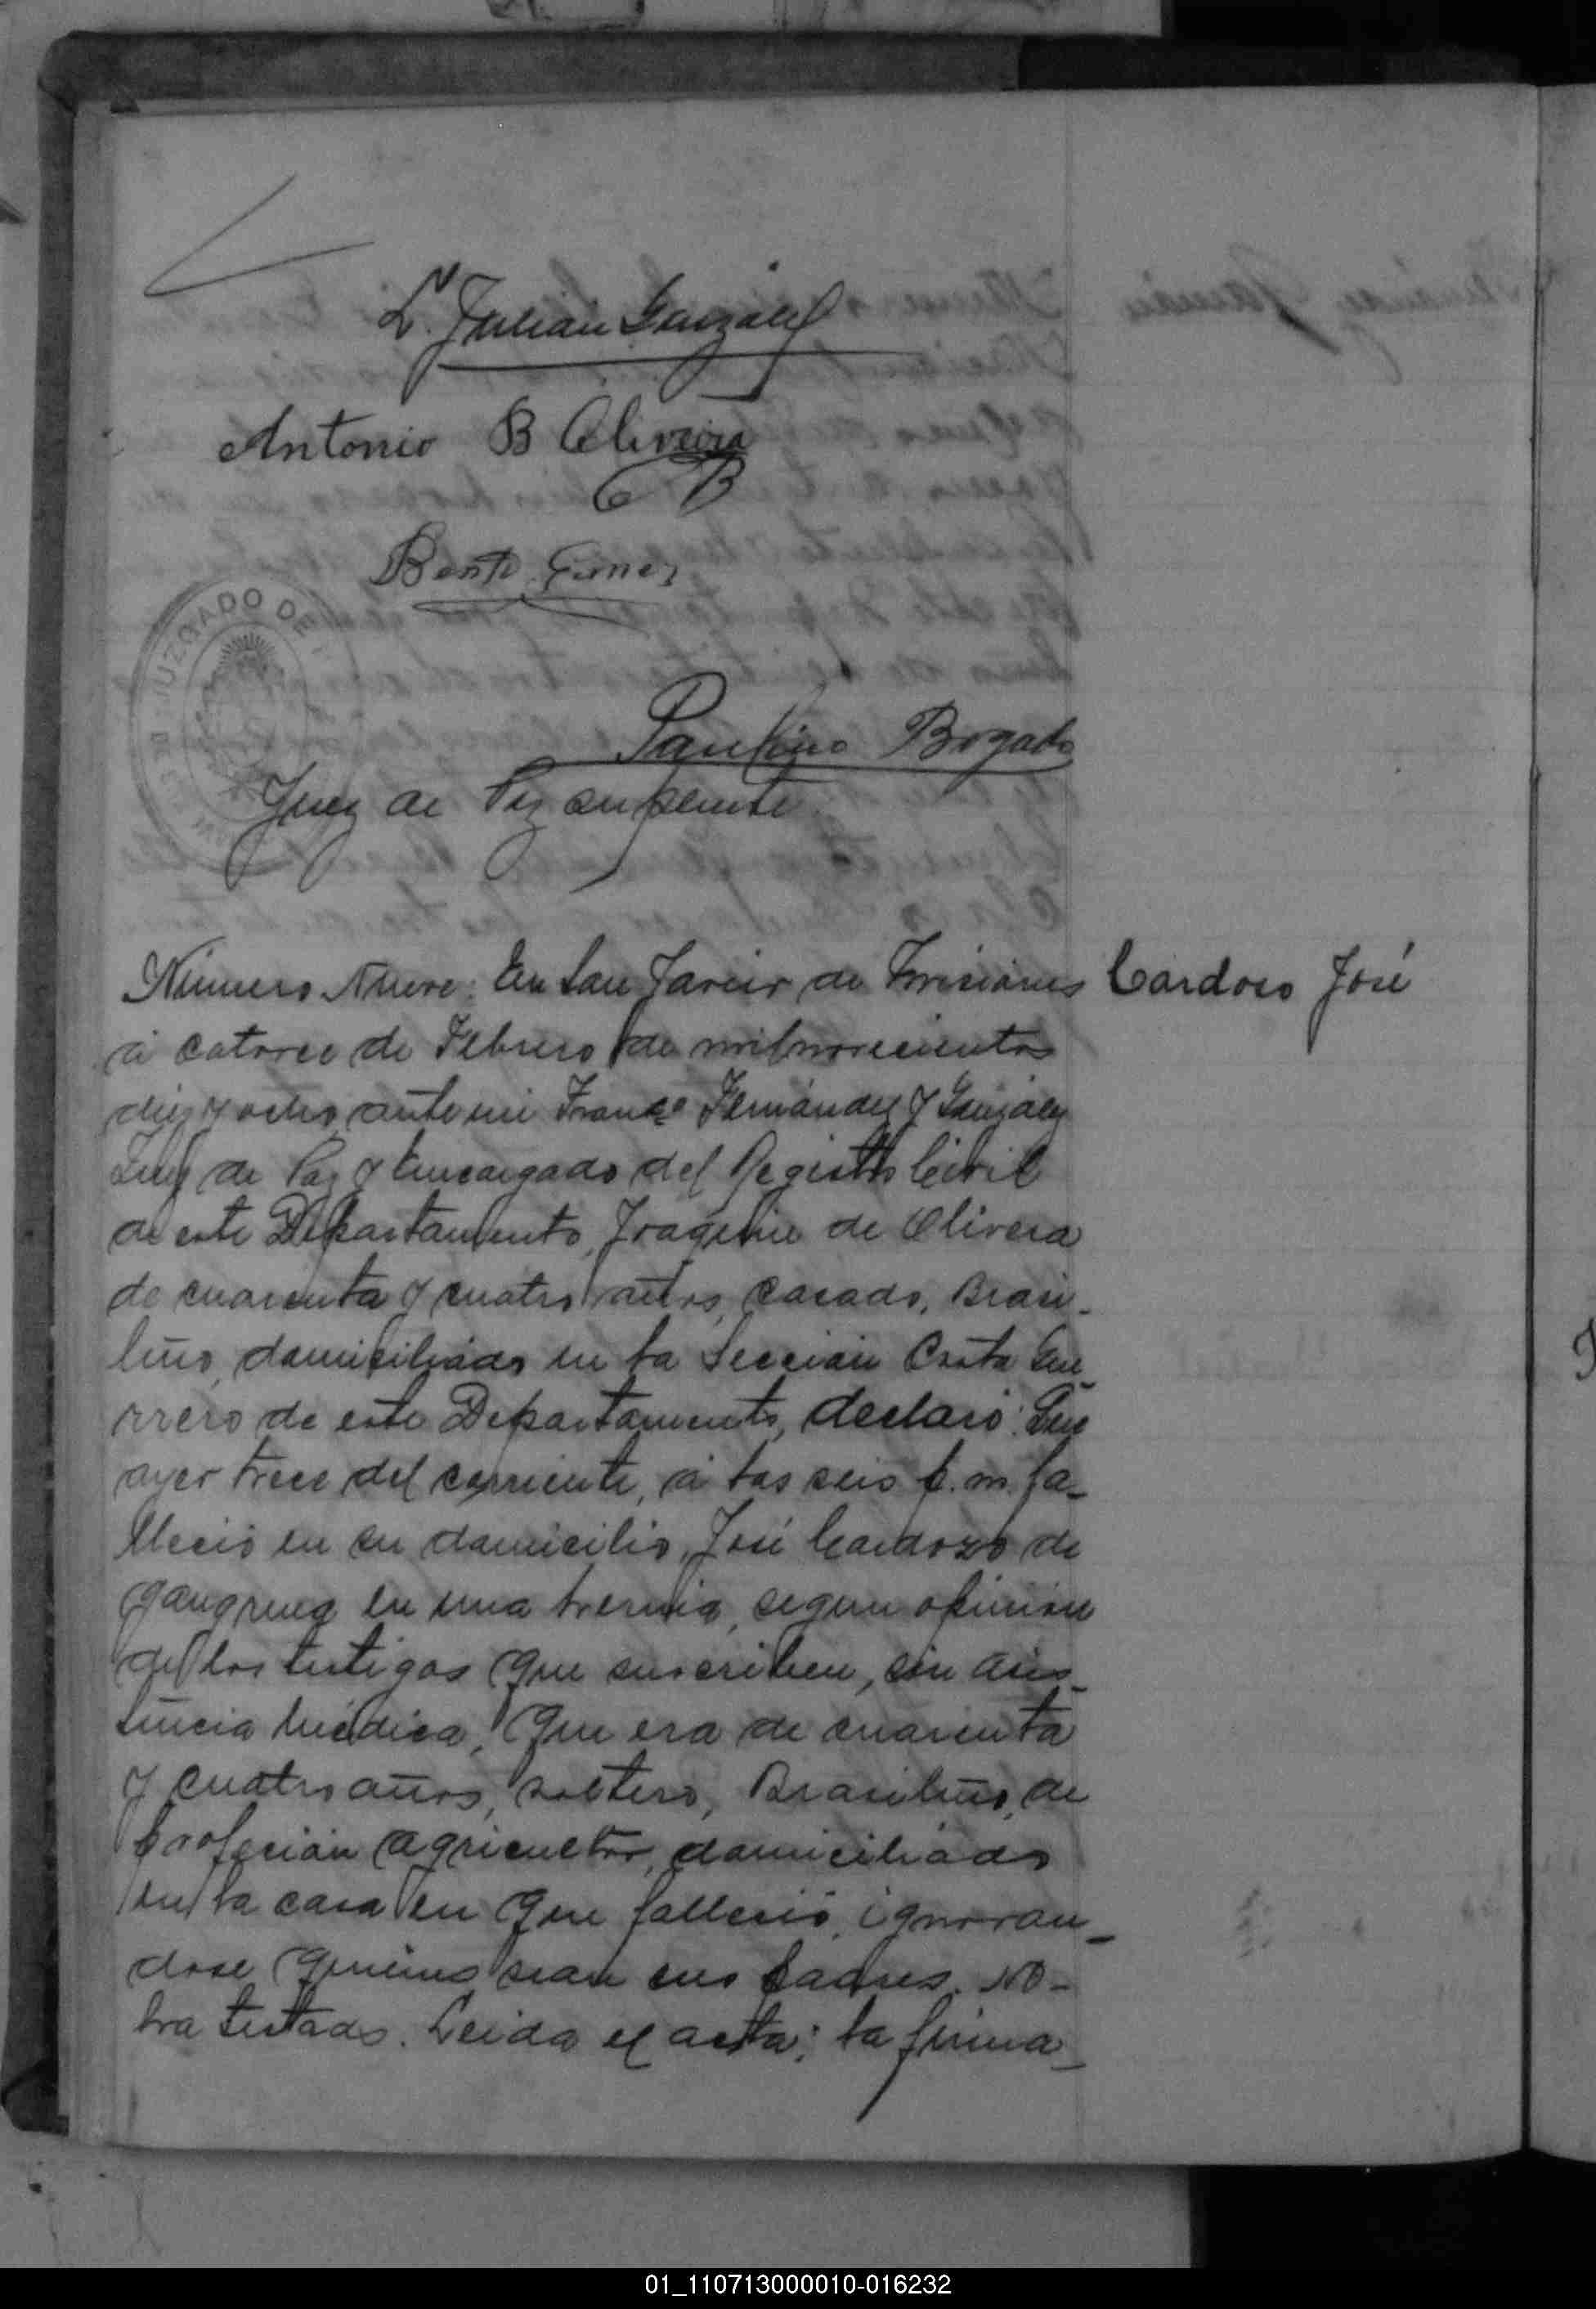 L. Julián González
Antonio B Oliveira
B
Paulino Bogado
Juez de Paz suplente
JUZGADO DE
Número Nueve: En San Javier de Misiones
Cardoso José
á catorce de Febrero de mil novecientos
diez y ocho, ante mi Franco Fernández y González
Juez de Paz y Encargado del Registro Civil
de este Departamento, Joaquin de Olivera
de cuarenta y cuatro años, casado, Brasi-
leño, domiciliado en la Sección Costa Gue-
rrero de este Departamento, declaró: Que
ayer trece del corriente, á las seis p. m. fa-
lleció en su domicilio, José Cardozo de
gangrena en una hernia, segun opinion
de los testigos que suscriben, sin asis-
tencia médica, Que era de cuarenta
y cuatro años, soltero, Brasileño, de
profesión agricultor, domiciliado
en la casa en que falleció, ignoran-
dose quienes sean sus padres. No-
ha testado. Leida el acta; la firma-
01_110713000010-016232